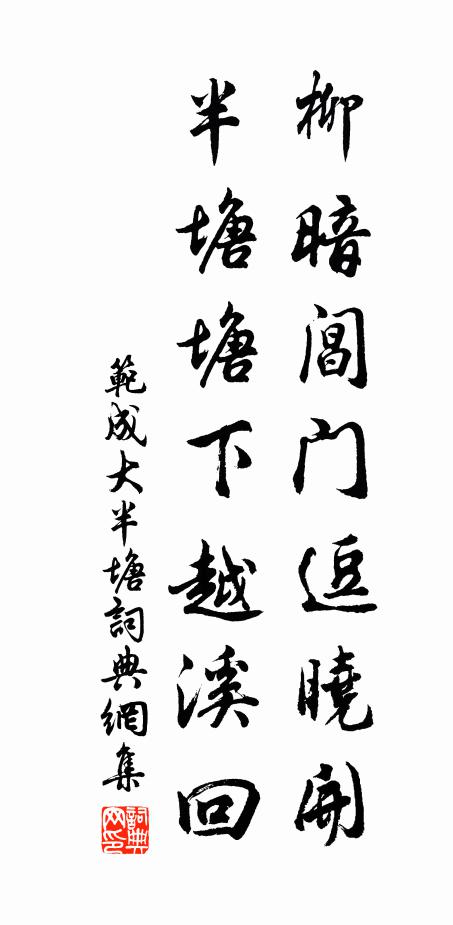 柳暗閶门逗曉開
半塘塘下越溪回
範成大半塘詞典網集
詞典网印